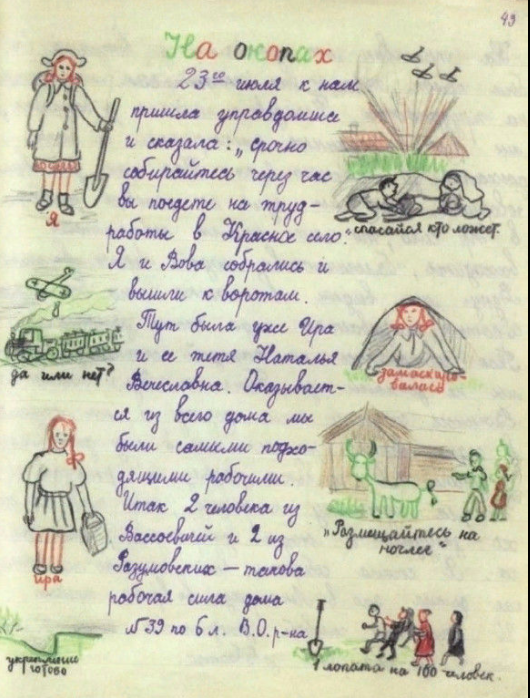 49
На окопах
23го июля к нам
пришла управдомша
и сказала: „срочно
собирайтесь через час
вы поедете на труд-
работы в Красное село."
Я и Вова собрались и
вышли к воротам.
Тут была уже Ира
и ее тетя Наталья
Вячеславна. Оказывает-
ся из всего дома мы
были самыми подхо-
дящими рабочими.
Итак 2 человека из
Вассоевичей и 2 из
Разумовских — такова
рабочая сила дома
№39 по 6 л. В.О. р-на
Я
да или нет?
ира
укрепление
готово
„спасайся кто может."
замаскиро-
валась
„Размещайтесь на
ночлег"
1 лопата на 100 человек.